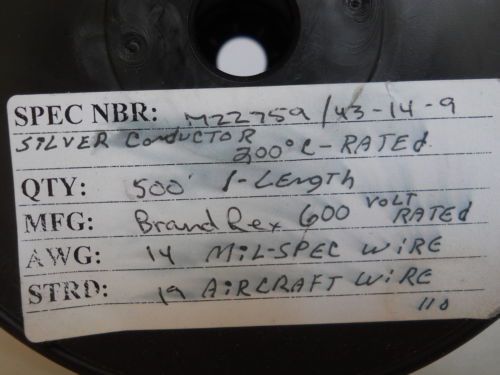 SPEC NBR: M22759/43-14-9
SILVER CONDUCTOR
200°C-RATEd
QTY: 500' 1-LEngth
MFG: Brand Rex 600 VOLT RATEd
AWG: 14 MiL-SPEC WiRE
STRD: 19 AiRCRAFT WiRE
110